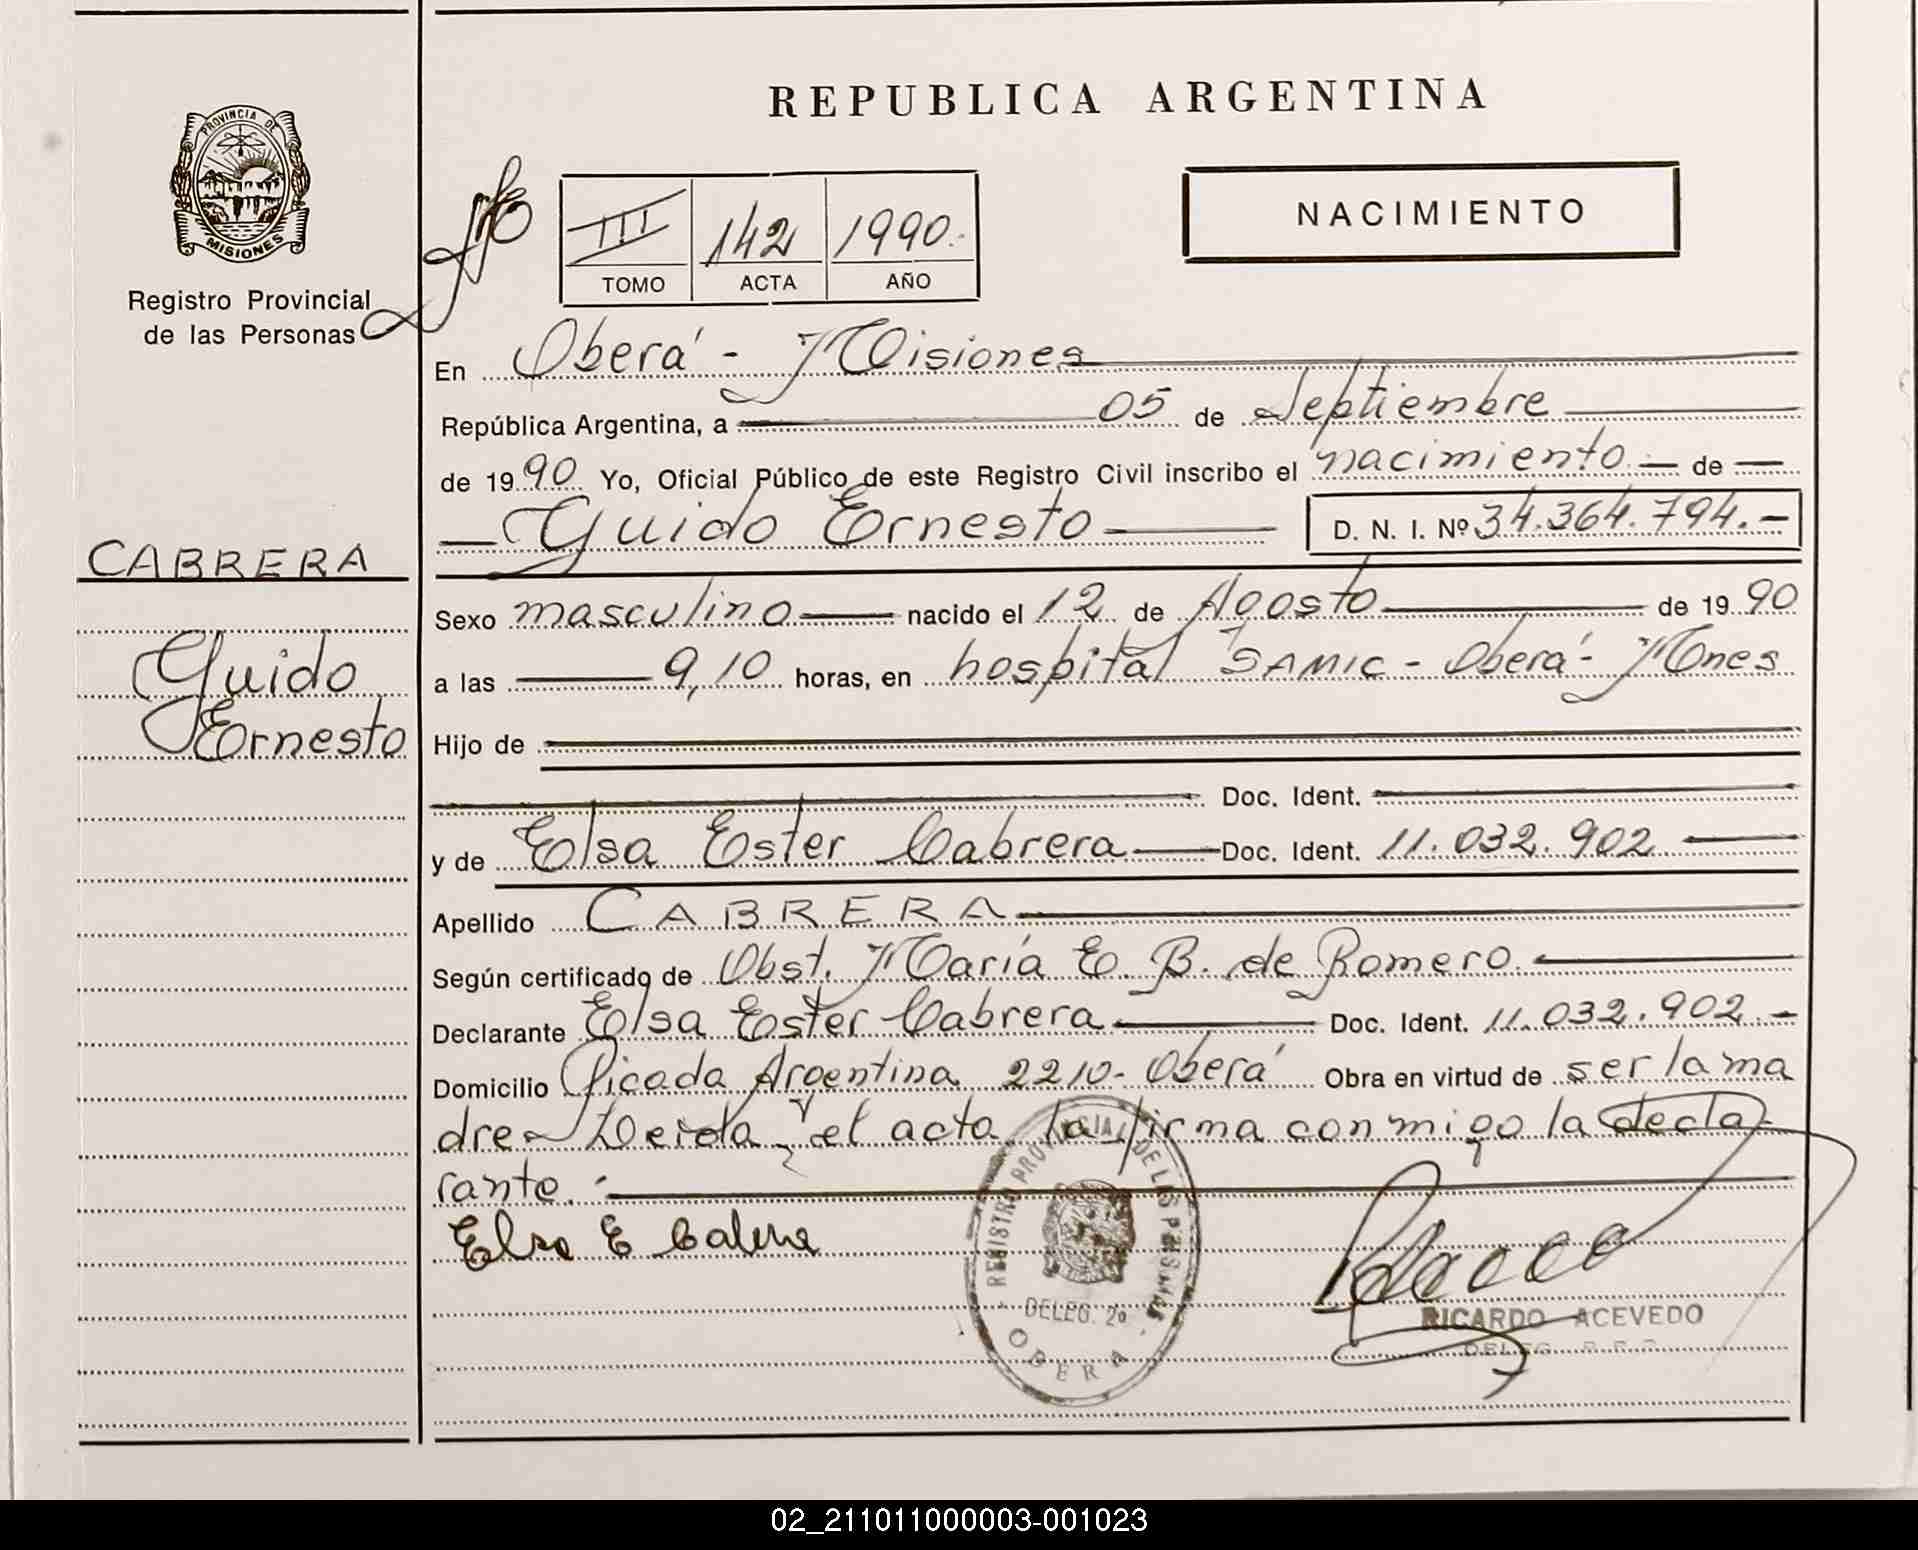 REPUBLICA ARGENTINA
PROVINCIA DE
MISIONES
Registro Provincial
de las Personas
III 142 1990.-
TOMO ACTA AÑO
NACIMIENTO
En Oberá - Misiones
República Argentina, a 05 de Septiembre
de 1990 Yo, Oficial Público de este Registro Civil inscribo el nacimiento — de —
— Guido Ernesto — D. N. I. Nº 34.364.794.-
CABRERA
Guido
Ernesto
Sexo masculino — nacido el 12 de Agosto — de 1990
a las — 9,10 horas, en hospital SAMIC - Oberá - Mnes
Hijo de
Doc. Ident.
y de Elsa Ester Cabrera — Doc. Ident. 11.032.902 —
Apellido CABRERA
Según certificado de Obst. María E. B. de Romero. —
Declarante Elsa Ester Cabrera — Doc. Ident. 11.032.902.-
Domicilio Picada Argentina 2210- Oberá Obra en virtud de ser la ma
dre- Leida el acta, la firma conmigo la decla
rante.-
Elsa E Cabrera
REGISTRO PROVINCIAL DE LAS PERSONAS
DELEG. 2º
OBERA
RICARDO ACEVEDO
DELEG. R.P.P.
02_211011000003-001023